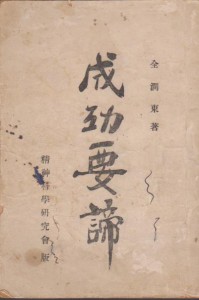 全潤東著
成功要諦
精神科學硏究會版